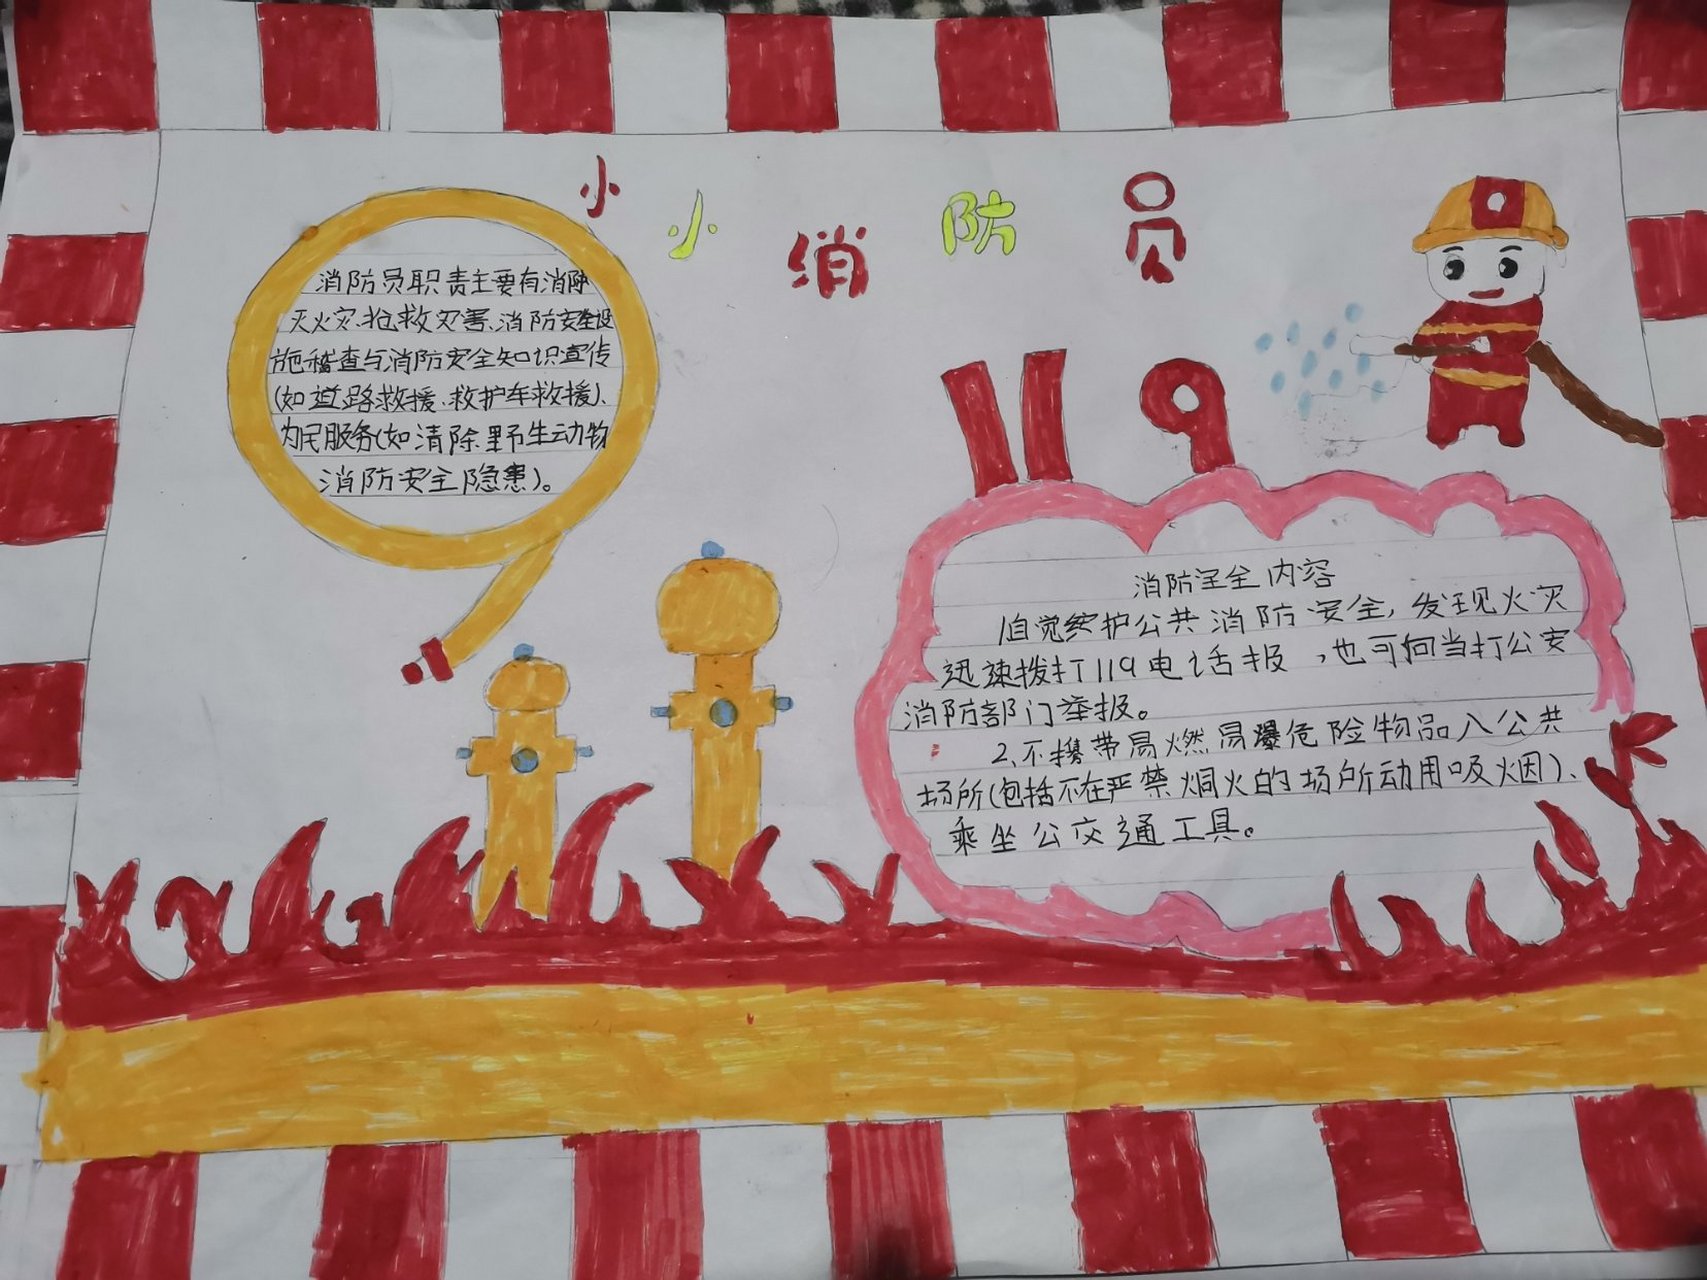 小小消防员
消防员职责主要有消除
灭火灾、抢救灾害、消防安全设
施稽查与消防安全知识宣传
(如道路救援、救护车救援)、
为民服务(如清除野生动物
消防安全隐患)。
119
消防安全内容
1自觉维护公共消防安全,发现火灾
迅速拨打119电话报,也可向当打公安
消防部门举报。
2、不携带易燃易爆危险物品入公共
场所(包括不在严禁烟火的场所动用吸烟)、
乘坐公交通工具。